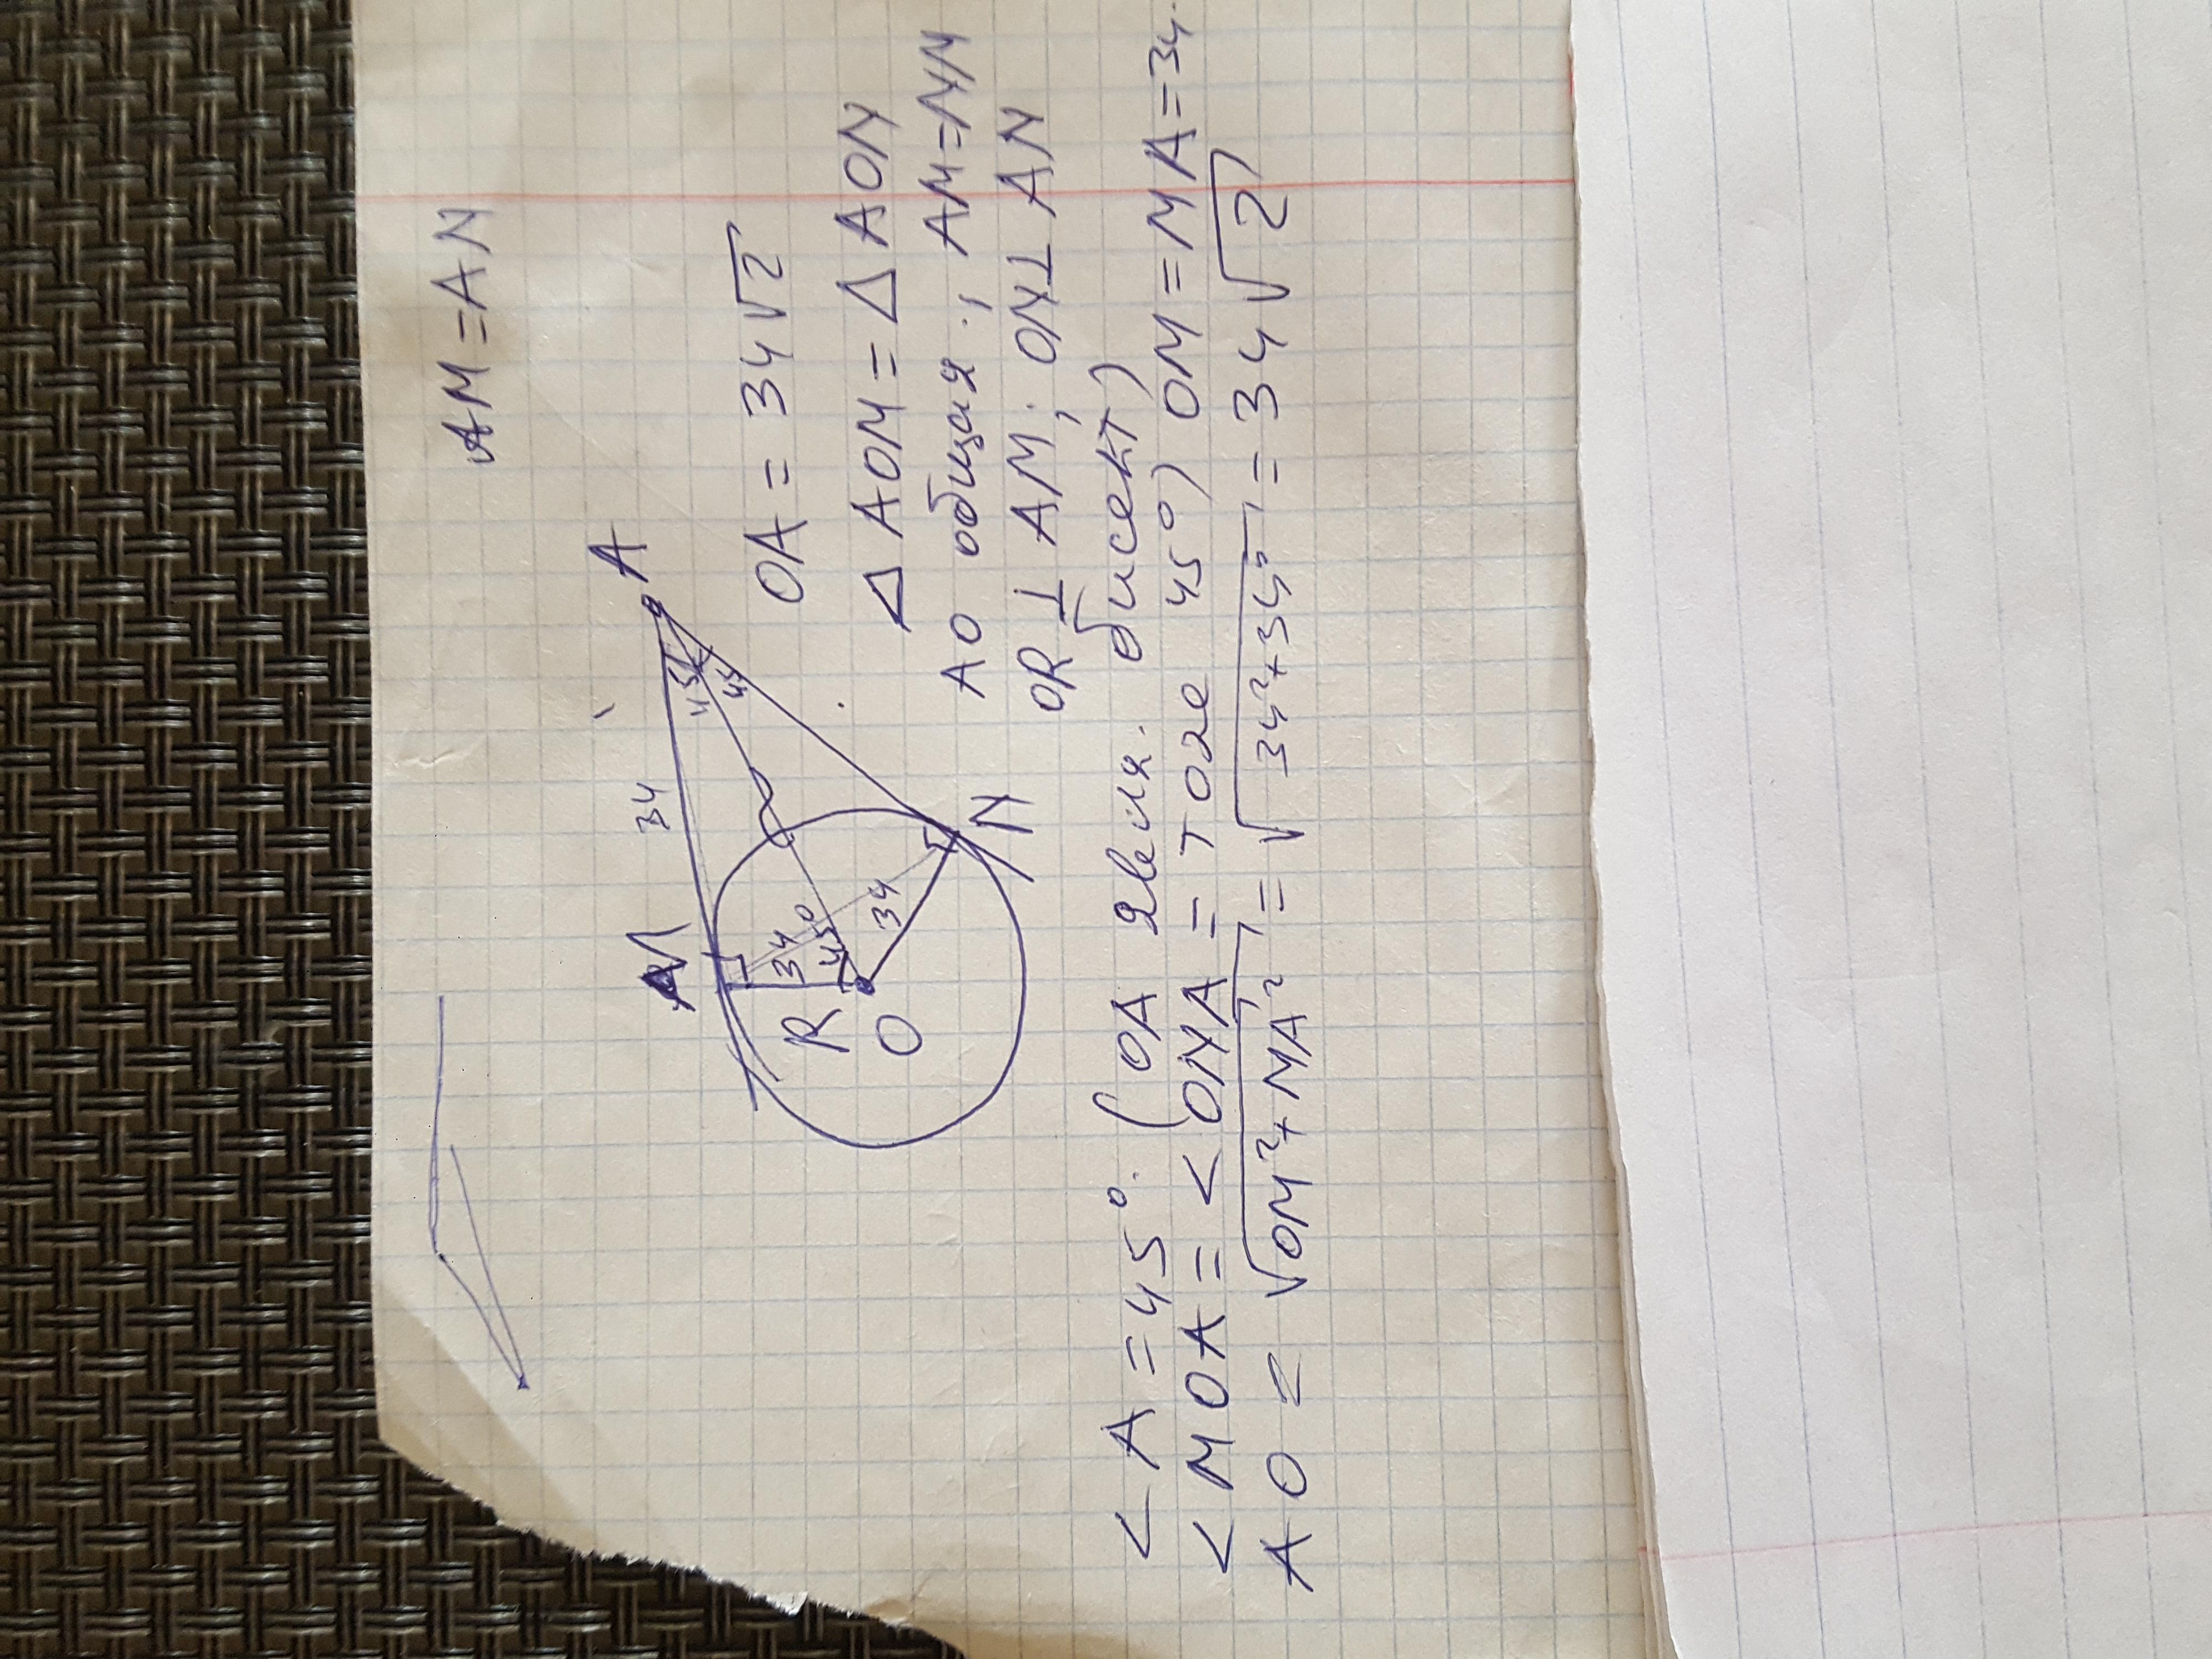 AM = AN
A
34
45
45
M
34
45°
R
34
O
N
OA = 34√2
△ AOM = △ AON
AO общая ; AM = NN
OR ⊥ AM; ON ⊥ AN
< A = 45°. (OA явля. бисект)
< MOA = < ONA = тоже 45°) OM = MA = 34.
AO = √OM²+MA² = √34²+34² = 34√2)